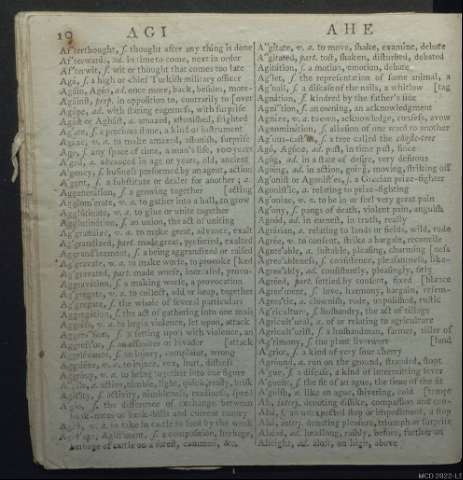 10 AGI AHE
Af'terthought, s. thought after any thing is done
Af'terwards, ad. in time to come, next in order
Af'terwit, s. wit or thought that comes too late
Agá, s. a high or chief Turkish military officer
Again, Agèn, ad. once more, back, besides, more-
Against, prep. in opposition to, contrarily to [over
Agàpe, ad. with staring eagerness, with surprise
Agast or Aghast, a. amazed, astonished, frighted
Ag'ate, s. a precious stone, a kind of instrument
Agaze, v. a. to make amazed, astonish, surprise
Age, s. any space of time, a man's life, 100 years
A'ged, a. advanced in age or years, old, ancient
A'gency, s. business performed by an agent, action
A'gent, s. a substitute or dealer for another; a.
Aggeneration, s. a growing together [acting
Agglom'erate, v. a. to gather into a ball, to grow
Agglutinate, v. a. to glue or unite together
Agglutination, s. an union, the act of uniting
Ag'grandize, v. a. to make great, advance, exalt
Ag'grandized, part. made great, preferred, exalted
Aggrandizement, s. a being aggrandized or raised
Ag'gravate, v. a. to make worse, to provoke [ked
Ag'gravated, part. made worse, increased, provo-
Aggravation, s. a making worse, a provocation
Ag'gregate, v. a. to collect, add or heap, together
Ag'gregate, s. the whole of several particulars
Aggregation, s. the act of gathering into one mass
Aggress, v. a. to begin violence, set upon, attack
Aggression, s. a setting upon with violence, an
Aggressor, s. an assaulter or invader [attack
Aggrievance, s. an injury, complaint, wrong
Aggrieve, v. a. to injure, vex, hurt, distress
Aggroup, v. a. to bring together into one figure
Ag'ile, a. active, nimble, light, quick, ready, brisk
Agility, s. activity, nimbleness, readiness, speed
A'gio, s. the difference of exchange between
bank-notes or bank-bills and current money
Agist, v. a. to take in cattle to feed by the week
Agistage, Agistment, s. a composition, herbage,
feeding of cattle on a forest, common, &c.
A''gitate, v. a. to move, shake, examine, debate
A''gitated, part. tost, shaken, disturbed, debated
Agitation, s. a motion, emotion, debate
Ag'let, s. the representation of some animal, a
Ag'nail, s. a disease of the nails, a whitlow [tag
Agnation, s. kindred by the father's side
Agni''tion, s. an owning, an acknowledgment
Agnize, v. a. to own, acknowledge, confess, avow
Agnomination, s. allusion of one word to another
Ag'nus-castus, s. a tree called the chaste-tree
Ago, Agóne, ad. past, in time past, since
Agóg, ad. in a state of desire, very desirous
Agóing, ad. in action, going, moving, striking off
Ag'onist or Agonistes, s. a Grecian prize-fighter
Agonist'ic, a. relating to prize-fighting
Ag'onize, v. n. to be in or feel very great pain
Ag'ony, s. pangs of death, violent pain, anguish
Agood, ad. in earnest, in truth, really
Agrárian, a. relating to lands or fields, wild, rude
Agree, v. to consent, strike a bargain, reconcile
Agree'able, a. suitable, pleasing, charming [ness
Agree'ableness, s. consistence, pleasantness, like-
Agree'ably, ad. consistently, pleasingly, fitly
Agreed, part. settled by consent, fixed [blance
Agree'ment, s. love, harmony, bargain, resem-
Agres'tic, a. clownish, rude, unpolished, rustic
Ag'riculture, s. husbandry, the act of tillage
Agricult'ural, a. of or relating to agriculture
Agricult'urist, s. a husbandman, farmer, tiller of
Ag'rimony, s. the plant liverwort [land
A'griot, s. a kind of very sour cherry
Aground, a. run on the ground, stranded, stopt
A'gue, s. a disease, a kind of intermitting fever
A'guefit, s. the fit of an ague, the time of the fit
A'guish, a. like an ague, shivering, cold [tempt
Ah, interj. denoting dislike, compassion and con-
Aha, s. an unexpected stop or impediment, a stop
Aha, interj. denoting pleasure, triumph or surprise
Ahead, ad. headlong, rashly, before, further on
Aheight, ad. aloft, on high, above
MCD 2022-L1